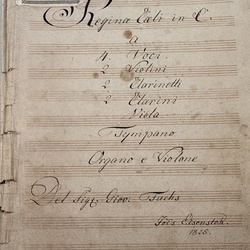 Regina Cæli in C.
a
4. Voci.
2 Violini
2 Clarinetti
2 Clarini
Viola
Tympano
Organo e Violone
Del Sigl. Giov. Fuchs